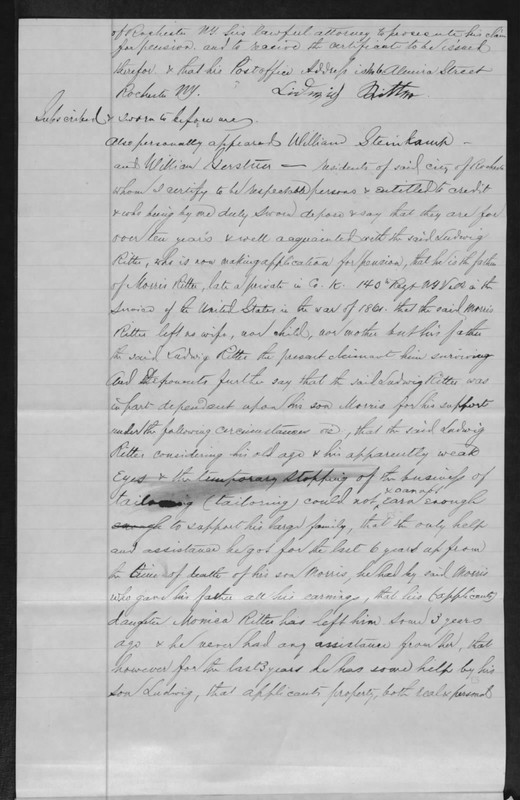 of Rochester NY his lawful attorney to prosecute his claim
for pension. and to receive the certificate to be issued
therefor & that his Post office Address is Almira Street
Rochester NY. Ludwig Ritter
Subscribed & sworn to before me.
Also personally appeared William Steinkamp -
and William Gerstner — residents of said city of Rochester
whom I certify to be respectable persons & entitled to credit
& who being by me duly sworn depose & say that they are for
over ten years & well acquainted with the said Ludwig
Ritter, who is now making application for pension, that he is the father
of Morris Ritter, late a private in Co. K. 140th Regt NY Vols in the
Service of the United States in the war of 1861. that the said Morris
Ritter left no wife, nor child, nor mother but his father
the said Ludwig Ritter the present claimant him surviving
And Deponents further say that the said Ludwig Ritter was
in part dependent upon his son Morris for his support
under the following circumstances viz, that the said Ludwig
Ritter considering his old age & his apparently weak
Eyes & the temporary stopping of the business of
tailoring (tailoring) could not earn enough
enough to support his large family, that the only help
and assistance he got for the last 6 years up from
the time of death of his son Morris, he had by said Morris
who gave his father all his earnings, that his (applicants)
daughter Monica Ritter has left him some 3 years
ago & he never had any assistance from her, that
however for the last 3 years he has some help by his
Son Ludwig, that applicants property, both real & personal